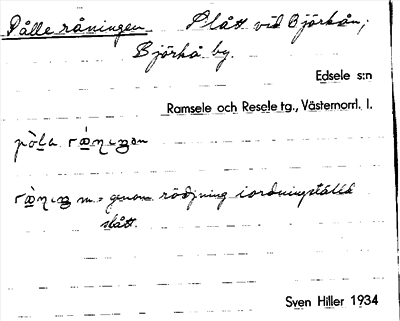 Pålle råningen. Slått vid Björkån;
Björkå by.
Edsele s:n
Ramsele och Resele tg., Västernorrl. l.
m. = genom rödjning iordningställd
slått.
Sven Hiller 1934